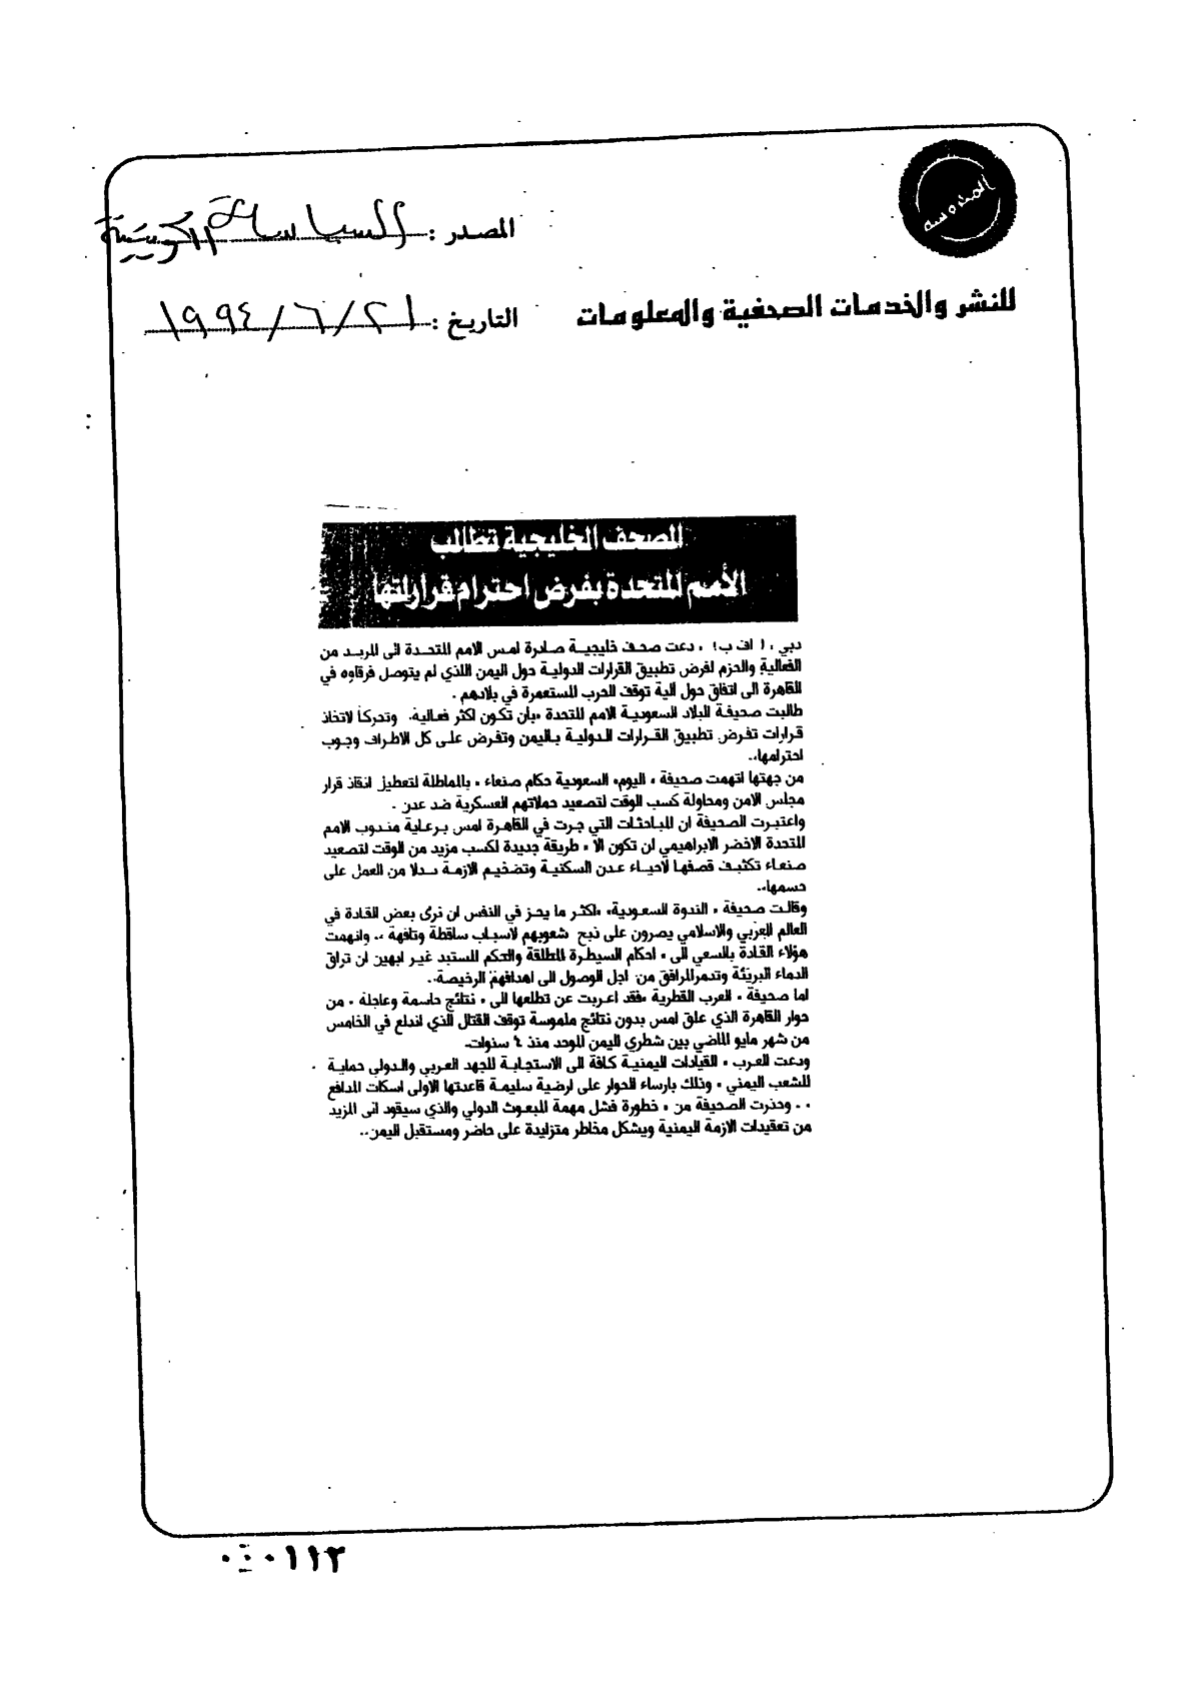 المصدر : السياسة الكويتية
للنشر والخدمات الصحفية والمعلومات
التاريخ : ٢١/٦/١٩٩٤
الصحف الخليجية تطالب
الأمم المتحدة بفرض احترام قراراتها
دبي ، ( اف ب) ، دعت صحف خليجية صادرة امس الامم المتحدة الى المزيد من
الفعالية والحزم لفرض تطبيق القرارات الدولية حول اليمن الذي لم يتوصل فرقاوه في
القاهرة الى اتفاق حول آلية توقف الحرب المستعمرة في بلادهم .
طالبت صحيفة البلاد السعودية الامم المتحدة «بأن تكون اكثر فعالية. وتحركاً لاتخاذ
قرارات تفرض تطبيق القرارات الدولية باليمن وتفرض على كل الاطراف وجوب
احترامها».
من جهتها اتهمت صحيفة « اليوم» السعودية حكام صنعاء ، بالمماطلة لتعطيل انفاذ قرار
مجلس الامن ومحاولة كسب الوقت لتصعيد حملاتهم العسكرية ضد عدن .
واعتبرت الصحيفة ان المباحثات التي جرت في القاهرة امس برعاية مندوب الامم
المتحدة الاخضر الابراهيمي لن تكون الا « طريقة جديدة لكسب مزيد من الوقت لتصعيد
صنعاء تكثيف قصفها لاحياء عدن السكنية وتضخيم الازمة بدلا من العمل على
حسمها».
وقالت صحيفة « الندوة السعودية» «اكثر ما يحز في النفس ان نرى بعض القادة في
العالم العربي والاسلامي يصرون على نبح شعوبهم لاسباب ساقطة وتافهة ،. واتهمت
هؤلاء القادة بالسعي الى « احكام السيطرة المطلقة والحكم المستبد غير ابهين ان تراق
الدماء البريئة وتدمر المرافق من اجل الوصول الى اهدافهم الرخيصة».
اما صحيفة « العرب القطرية «فقد اعربت عن تطلعها الى « نتائج حاسمة وعاجلة » من
حوار القاهرة الذي علق امس بدون نتائج ملموسة توقف القتال الذي اندلع في الخامس
من شهر مايو الماضي بين شطري اليمن الموحد منذ ٤ سنوات.
ودعت العرب « القيادات اليمنية كافة الى الاستجابة للجهد العربي والدولي حماية
للشعب اليمني ، وذلك بارساء الحوار على ارضية سليمة قاعدتها الاولى اسكات المدافع
. وحذرت الصحيفة من « خطورة فشل مهمة المبعوث الدولي والذي سيقود الى المزيد
من تعقيدات الازمة اليمنية ويشكل مخاطر متزايدة على حاضر ومستقبل اليمن».
٠٠٠١١٣